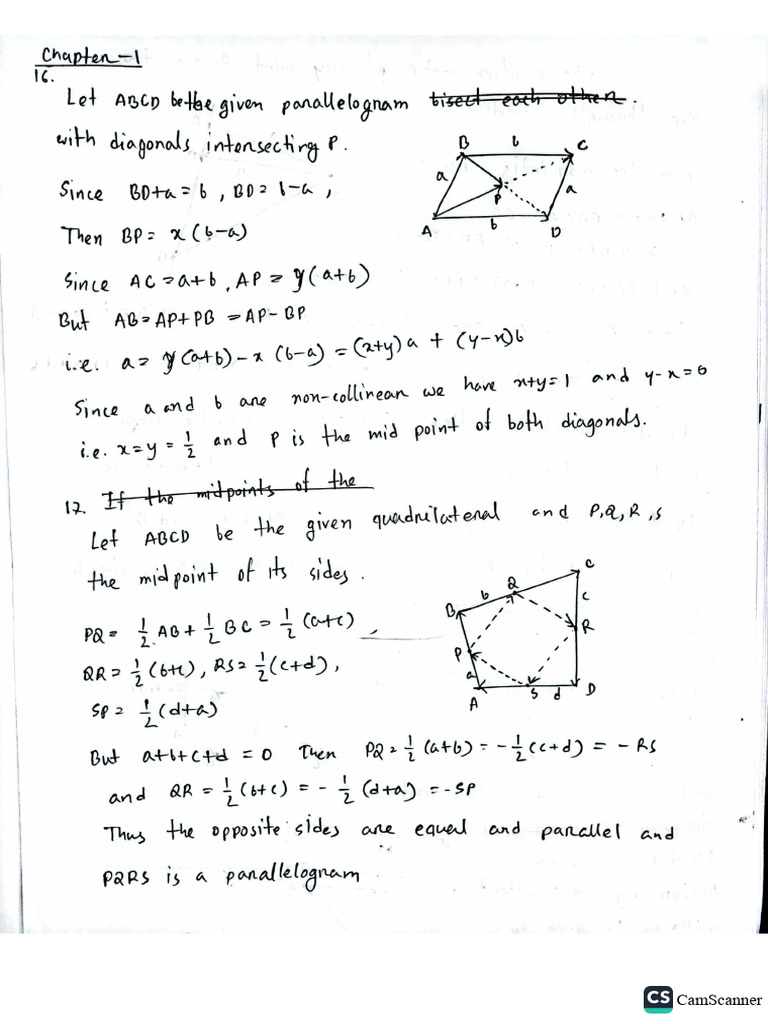 Chapter-1
16.
Let ABCD be the given parallelogram bisect each other.
with diagonals intersecting P.
B b C
a
P
a
A b D
Since BD+a = b, BD = b-a,
Then BP = x(b-a)
Since AC = a+b, AP = y(a+b)
But AB = AP+PB = AP-BP
i.e. a = y(a+b)-x(b-a) = (x+y)a + (y-x)b
Since a and b are non-collinear we have x+y=1 and y-x=0
i.e. x=y=1/2 and P is the mid point of both diagonals.
17. If the midpoints of the
Let ABCD be the given quadrilateral and P,Q,R,S
the midpoint of its sides.
C
Q
b
B
c
R
P
a
A S d D
PQ = 1/2 AB + 1/2 BC = 1/2 (a+c)
QR = 1/2 (b+c), RS = 1/2 (c+d),
SP = 1/2 (d+a)
But a+b+c+d = 0 Then PQ = 1/2 (a+b) = -1/2 (c+d) = -RS
and QR = 1/2 (b+c) = -1/2 (d+a) = -SP
Thus the opposite sides are equal and parallel and
PQRS is a parallelogram
CS CamScanner